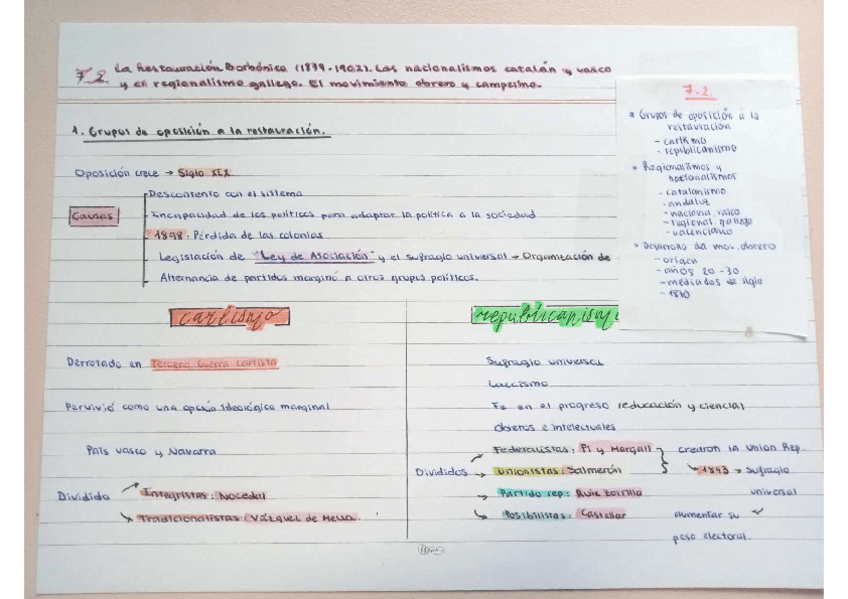 7.2. La Restauración Borbónica (1874-1902). Los nacionalismos catalán y vasco
y el regionalismo gallego. El movimiento obrero y campesino.
1. Grupos de oposición a la restauración.
Oposición crece → Siglo XIX
Causas
Descontento con el sistema
Incapacidad de los políticos para adaptar la política a la sociedad
1898: Pérdida de las colonias
Legislación de "Ley de Asociación" y el sufragio universal → Organización de
Alternancia de partidos marginó a otros grupos políticos.
7.2.
Grupos de oposición a la
restauración
- carlismo
- republicanismo
Regionalismos y
nacionalismos
- catalanismo
- andaluz
- naciona. vasco
- regional. gallego
- valenciano
Desarrollo del mov. obrero
- origen
- años 20-30
- mediados de siglo
- 1870
carlismo
Derrotado en Tercera Guerra carlista
Pervivió como una opción ideológica marginal
País vasco y Navarra
Dividido
Integristas: Nocedal
Tradicionalistas: Vázquez de Mella.
republicanism
Sufragio universal
Laicismo
Fe en el progreso (educación y ciencia)
Obreros e intelectuales
Divididos
Federalistas: Pi y Margall
Unionistas: Salmerón
Partido rep: Ruiz Zorrilla
Posibilistas: Castellar
crearon la Union Rep.
1893 → Sufragio
universal
aumentar su
peso electoral.